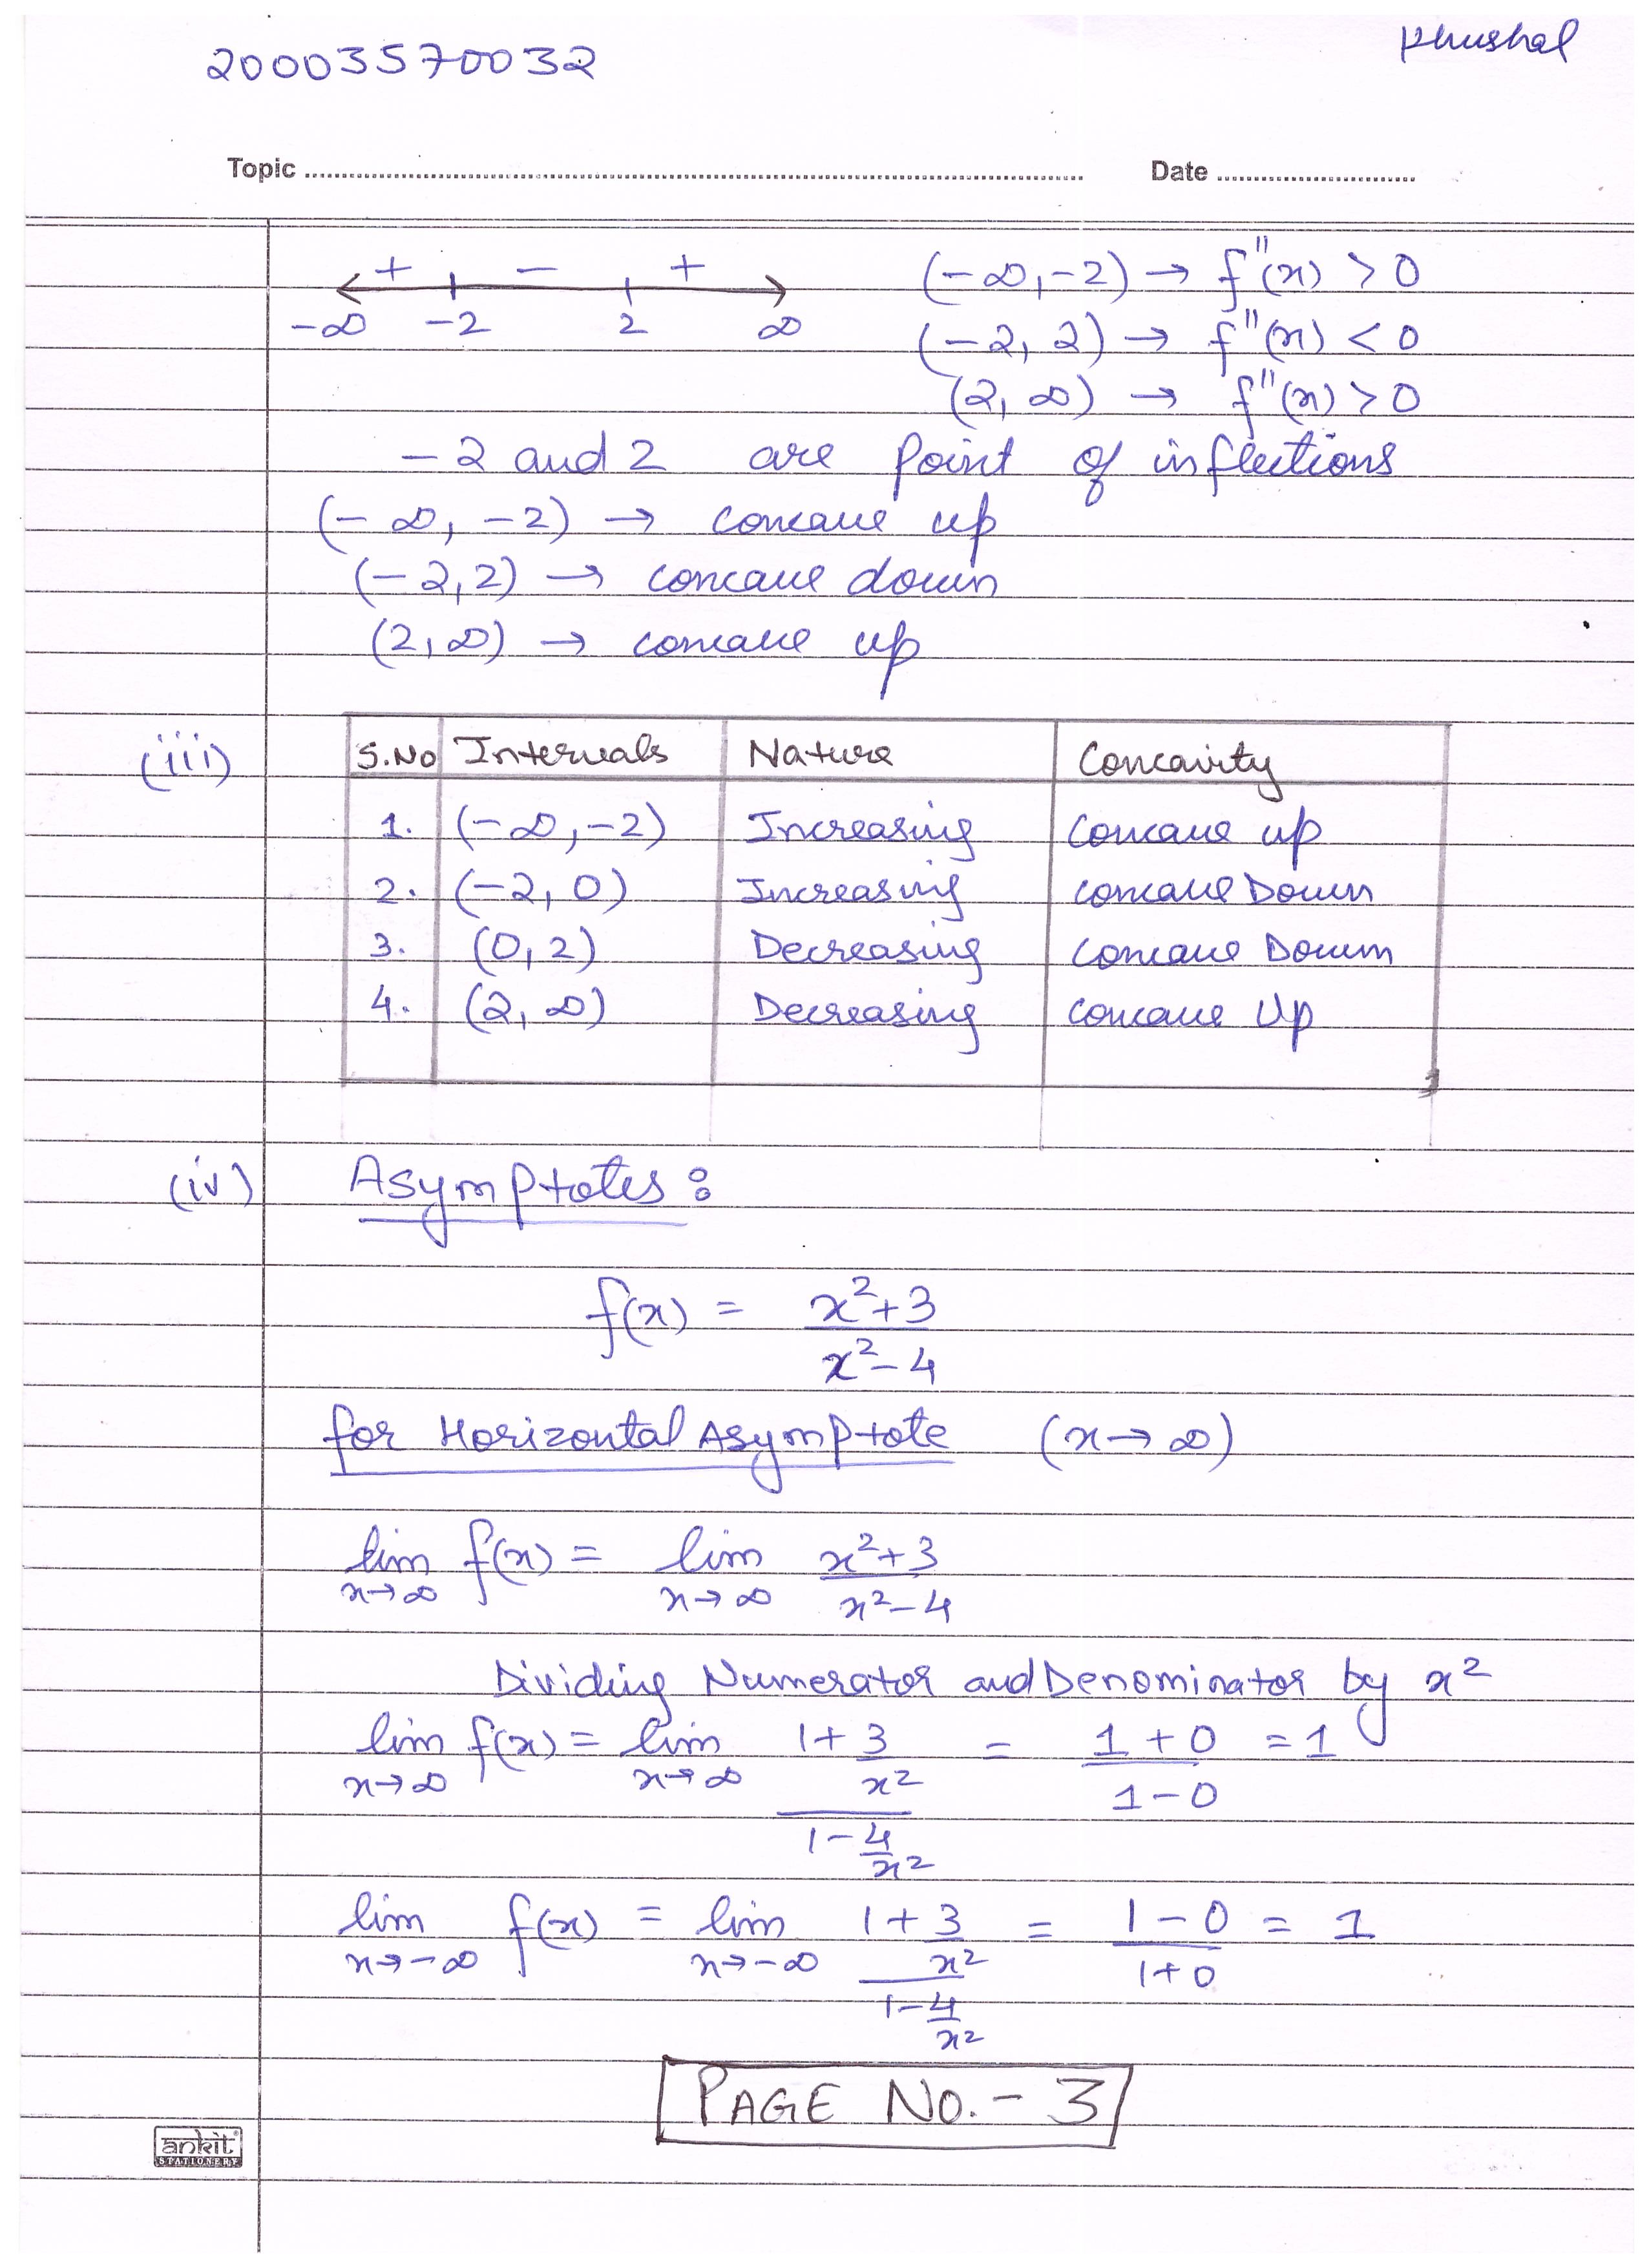 20003570032
Khushal
Topic ........ Date ........
+ − +
−∞ −2 2 ∞
(−∞,−2) → f''(x) > 0
(−2, 2) → f''(x) < 0
(2, ∞) → f''(x) > 0
−2 and 2 are point of inflections
(−∞, −2) → concave up
(−2,2) → concave down
(2,∞) → concave up
(iii) S.No Intervals Nature Concavity
1. (−∞,−2) Increasing Concave up
2. (−2,0) Increasing Concave Down
3. (0,2) Decreasing Concave Down
4. (2,∞) Decreasing Concave Up
(iv) Asymptotes:
f(x) = (x²+3)/(x²−4)
for Horizontal Asymptote (x→∞)
lim x→∞ f(x) = lim x→∞ (x²+3)/(x²−4)
Dividing Numerator and Denominator by x²
lim x→∞ f(x) = lim x→∞ (1+3/x²)/(1−4/x²) = (1+0)/(1−0) = 1
lim x→−∞ f(x) = lim x→−∞ (1+3/x²)/(1−4/x²) = (1−0)/(1+0) = 1
PAGE NO.- 3
ankit
STATIONERY